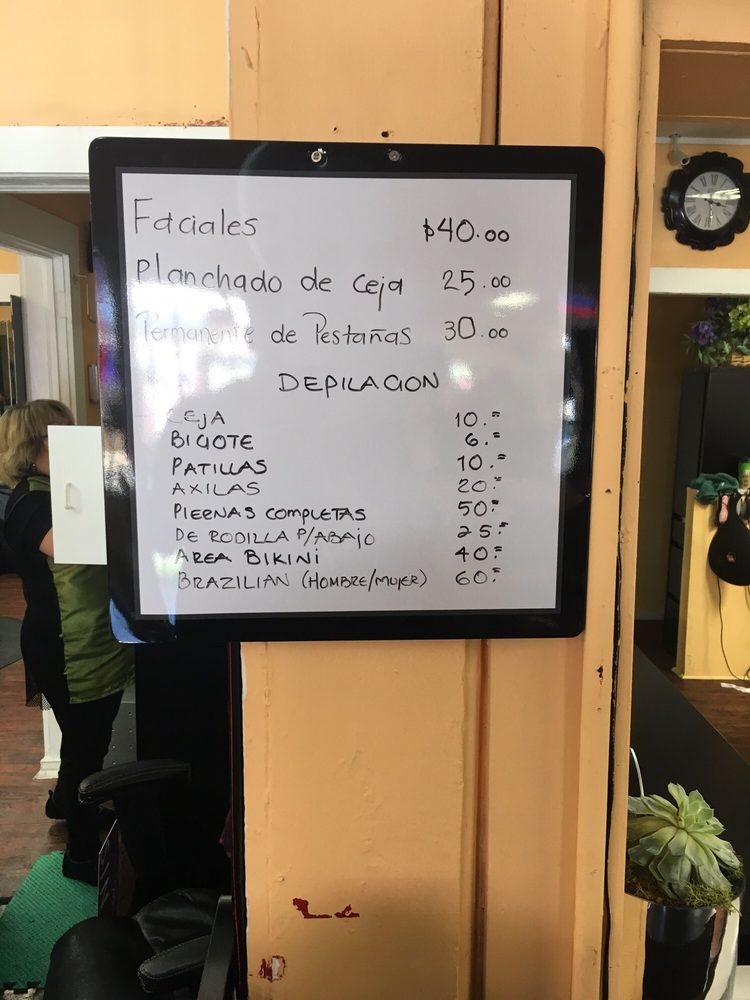 Faciales $40.00
Planchado de Ceja 25.00
Permanente de Pestañas 30.00
DEPILACION
CEJA 10.=
BIGOTE 6.=
PATILLAS 10.=
AXILAS 20.=
PIERNAS COMPLETAS 50.=
DE RODILLA P/ABAJO 25.=
AREA BIKINI 40.=
BRAZILIAN (HOMBRE/MUJER) 60.=